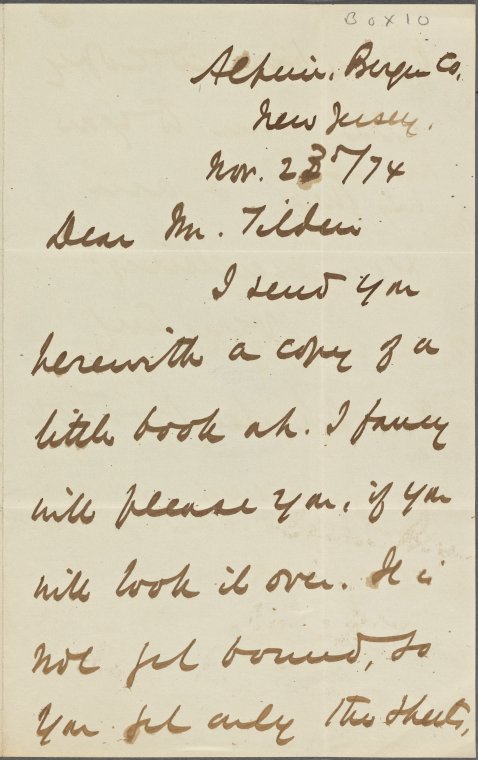 Box 10
Alpine, Bergen Co,
New Jersey.
Nov. 23d/74
Dear Mr. Tilden
I send you
herewith a copy of a
little book wh. I fancy
will please you, if you
will look it over. It is
not yet bound, so
you get only the sheets,